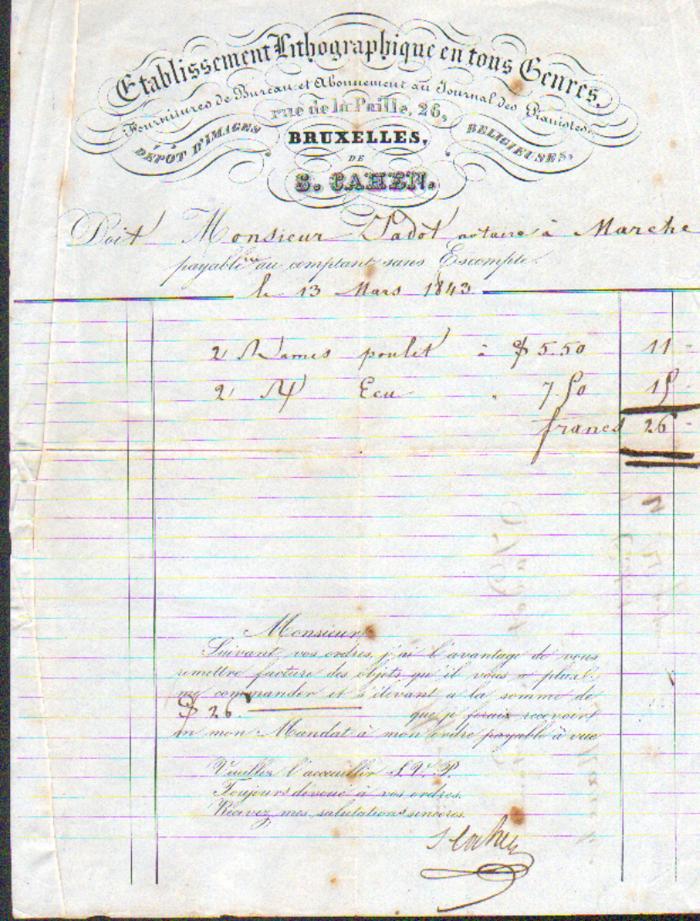 Etablissement Lithographique en tous Genres,
Fournitures de Bureau et Abonnement au Journal des Pianistes.
rue de la Paille, 26,
DÉPÔT D'IMAGES BRUXELLES, RELIGIEUSES,
DE
S. CAHEN.
Doit Monsieur Jadot notaire à Marche
payable au comptant sans Escompte.
le 13 Mars 1843
2 Rames poulet à $ 5.50 11 -
2 Ecu " 7.50 15
francs 26 -
Monsieur
Suivant vos ordres, j'ai l'avantage de vous
remettre facture des objets qu'il vous a plu
me commander et s'élevant a la somme de
$ 26. que je ferais recevoir
en mon Mandat à mon ordre payable à vue
Veuillez l'accueillir S.V.P.
Toujours dévoué à vos ordres.
Recevez mes salutations sincères.
S Cahen